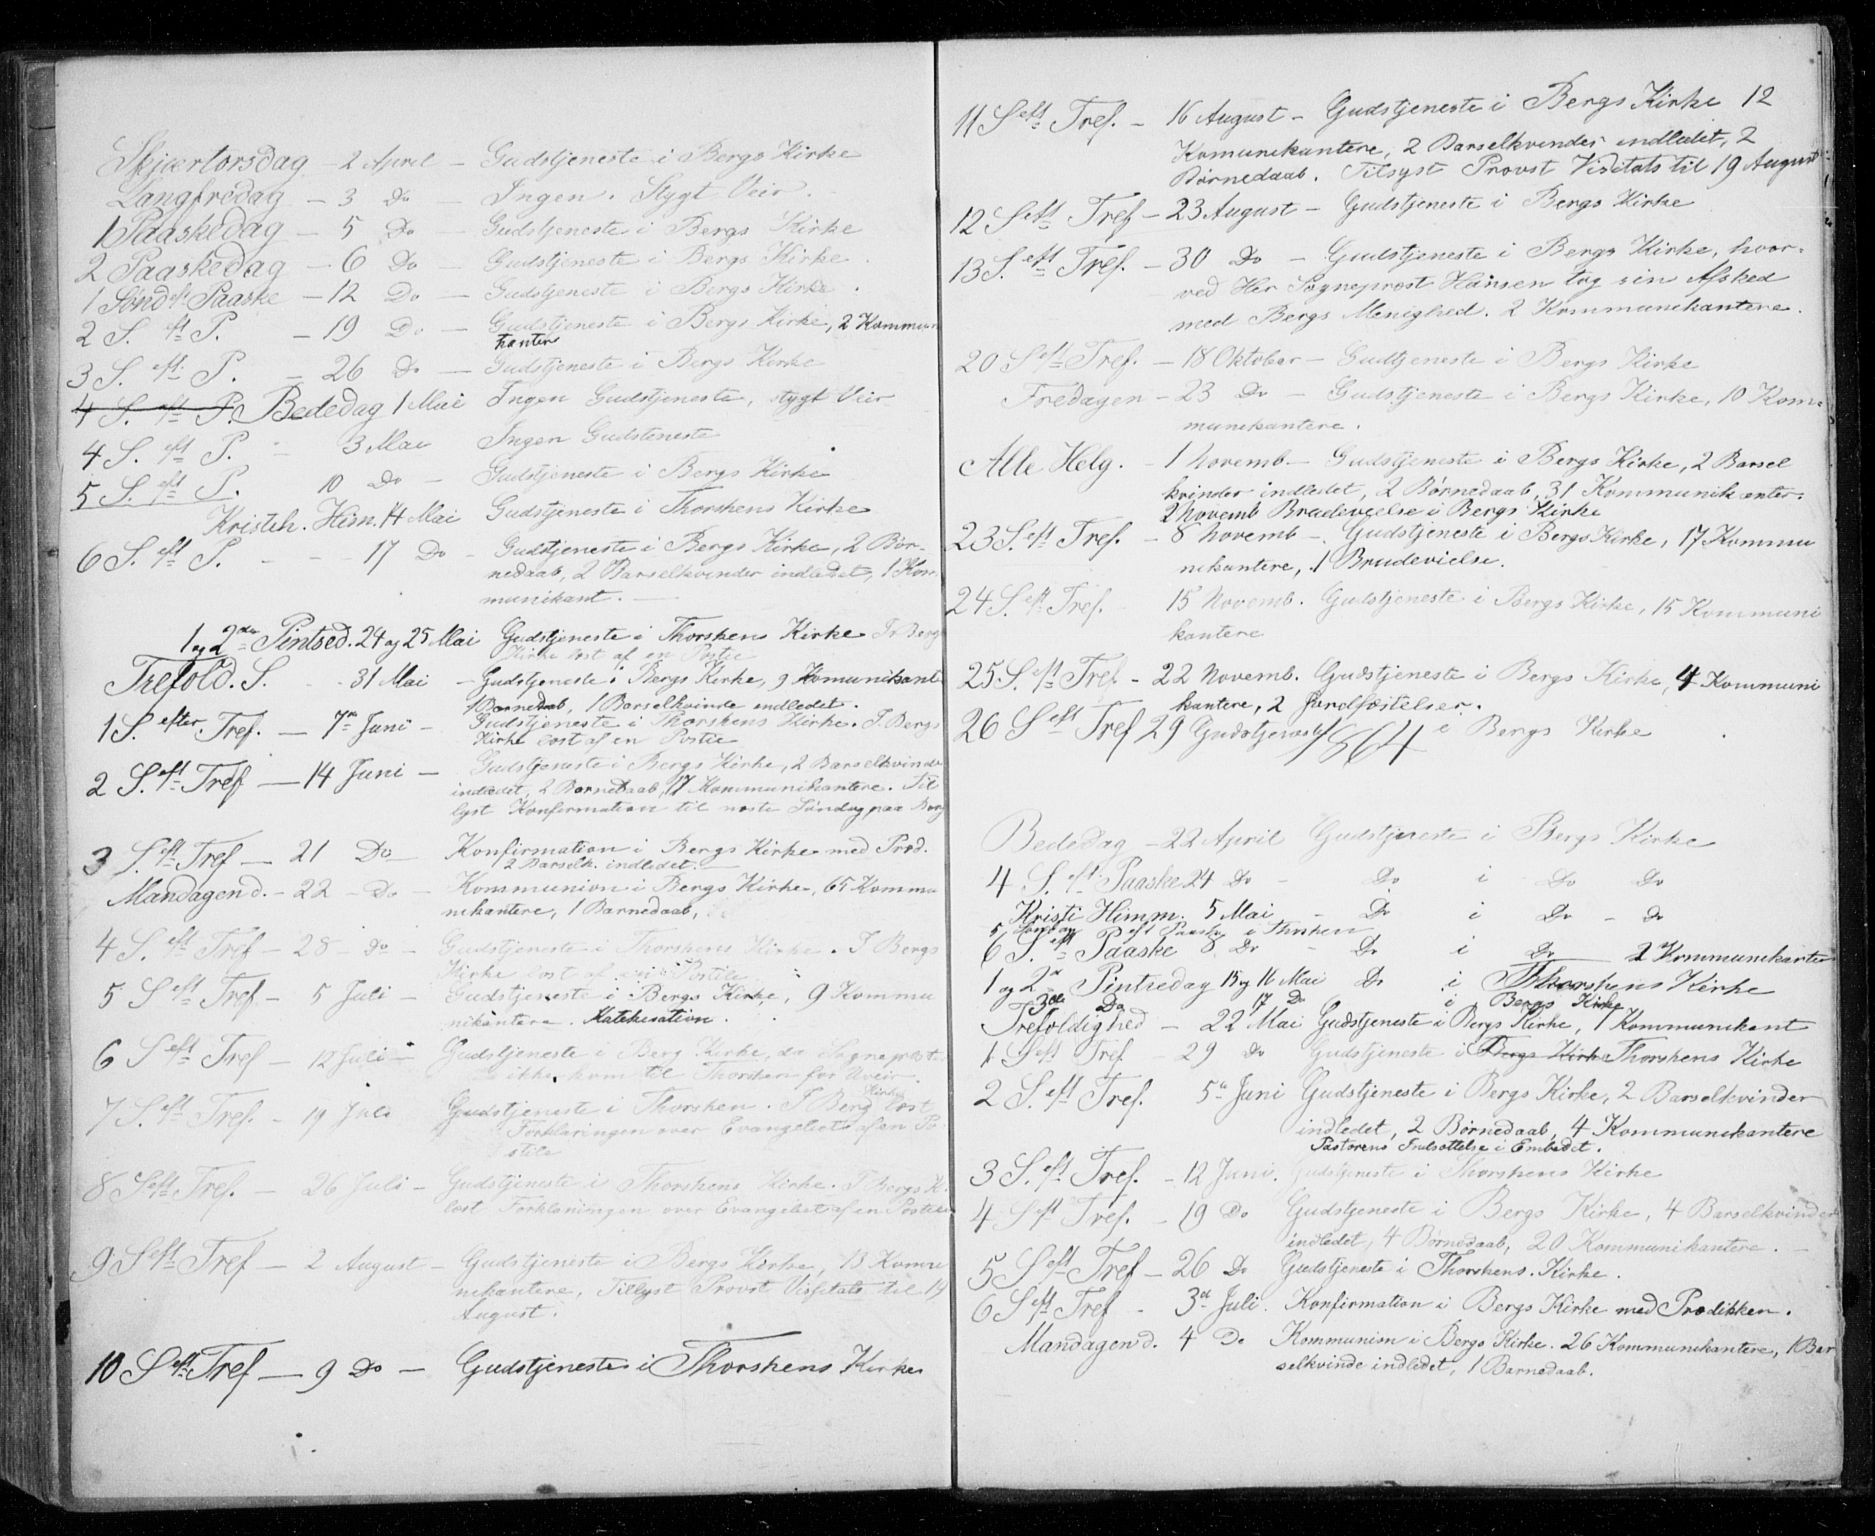 Skjærtorsdag - 2 April - Gudstjeneste i Bergs Kirke
Langfredag - 3 Do - Ingen. Stygt Veir.
1 Paaskedag - 5 Do - Gudstjeneste i Bergs Kirke
2 Paaskedag - 6 Do - Gudstjeneste i Bergs Kirke.
1 Sønd. eft Paaske - 12 Do - Gudstjeneste i Bergs Kirke.
2 S. eft P. - 19 Do - Gudstjeneste i Bergs Kirke, 2 Kommuni
kanter
3 S. eft. P. - 26 Do - Gudstjeneste i Bergs Kirke
4 S. eft P. Bededag 1 Mai Ingen Gudstjeneste, stygt Veir
4 S. eft P. - 3 Mai Ingen Gudsteneste
5 S. eft P. 10 Do - Gudstjeneste i Bergs Kirke
Kristih. Him. 14 Mai Gudstjeneste i Thorskens Kirke
6 S. eft P. - - 17 Do - Gudstjeneste i Bergs Kirke, 2 Bør-
nedaab, 2 Barselkvinder indledet, 1 Kom
munikant. -
1 og 2den Pintsed. 24 og 25 Mai Gudstjeneste i Thorskens Kirke I Bergs
Kirke læst af en Postil
Trefold. S. - 31 Mai - Gudstjeneste i Bergs Kirke, 9 Komunikant
1 Barnedaab, 1 Barselkvinde indledet.
1 S. efter Tref. - 7de Juni - Gudstjeneste i Thorskens Kirke. I Bergs
Kirke læst af en Postil
2 S. eft Tref - 14 Juni - Gudstjeneste i Bergs Kirke, 2 Barselkvinder
indledet, 2 Børnedaab, 17 Kommunikantere. Til
lyst Konfirmation til næste Søndag paa Berg
3 S. eft Tref - 21 Do - Konfirmation i Bergs Kirke med Præd.
2 Barselk. indledet. -
Mandagen d. - 22 - Do - Kommunion i Bergs Kirke, 65 Kommu
nikantere, 1 Barnedaab,
4 S. eft Tref - 28 - Do - Gudstjeneste i Thorskens Kirke. I Bergs
Kirke læst af en Postile
5 S eft Tref - 5 Juli - Gudstjeneste i Bergs Kirke, 9 Kommu
nikantere. Katekisation.
6 S eft Tref - 12 Juli - Gudstjeneste i Berg Kirke, da Sognepræst
ikke kom til Thorsken for Uveir.
7 S. eft Tref. - 19 Juli Gudstjeneste i Thorsken. I Berg Kirke læst
Forklaringen over Evangeliet af en Po
stile
8 S eft Tref. - 26 Juli - Gudstjeneste i Thorskens Kirke. I Bergs K.
læst Forklaringen over Evangeliet af en Postile
9 S eft Tref - 2 August - Gudstjeneste i Bergs Kirke, 13 Kommu
nikantere, Tillyst Provst Visitats til 19
August.
10 S eft Tref - 9 Do - Gudstjeneste i Thorskens Kirke
11 S eft Tref. - 16 August - Gudstjeneste i Bergs Kirke 12
Komunikantere, 2 Barselkvinder indledet, 2
Børnedaab. Tilsyst Provst Visitats til 19 August
12 S eft Tref - 23 August - Gudstjeneste i Bergs Kirke
13 S. eft Tref. - 30 Do - Gudstjeneste i Bergs Kirke, hvor-
ved Her Sogneprest Hansen tog sin Afsked
med Bergs Menighed. 2 Kommunikantere.
20 S eft Tref. - 18 Oktober - Gudtjeneste i Bergs Kirke
Fredagen - 23 Do - Gudstjeneste i Bergs Kirke, 10 Kom-
munikantere.
Alle Helg. - 1 Novemb - Gudstjeneste i Bergs Kirke, 2 Barsel
kvinder indledet, 2 Børnedaab, 31 Kommunikanter.
2 Novemb Brudevielse i Bergs Kirke
23 S. eft Tref. - 8 Novemb - Gudstjeneste i Bergs Kirke, 17 Kommu
nikantere, 1 Brudevielse.
24 S. eft Tref. 15 Novemb. Gudstjeneste i Bergs Kirke, 15 Kommuni
kantere
25 S. eft Tref - 22 Novemb. Gudstjeneste i Bergs Kirke, 4 Kommuni
kantere, 2 Jordfæstelser.
26 S eft Tref 29 Gudstjeneste i Bergs Kirke
1864
Bededag - 22 April Gudstjeneste i Bergs Kirke
4 S. eft. Paaske 24 Do - Do i Do Do
Kristi Himm. 5 Mai - Do i Do - Do
5 Søndag eft Paaske i Thorsken
6 S. eft Paaske 8 Do - Do i Do 2 Kommunikanter
1 og 2n Pintsedag 15 og 16 Mai Do i Thorskens Kirke
3die Do 17 Do i Bergs Kirke
Trefoldighed - 22 Mai Gudstjeneste i Bergs Kirke, 1 Kommunikant
1 S eft Tref - 29 Do Gudstjeneste i Bergs Kirke Thorskens Kirke
2 S. eft Tref. 5te Juni Gudstjeneste i Bergs Kirke, 2 Barselkvinder
indledet, 2 Børnedaab, 4 Kommunikantere
Pastorens Indsættelse i Embedet.
3 S. eft Tref. - 12 Juni. Gudstjeneste i Thorskens Kirke
4 S eft Tref. - 19 Do Gudstjeneste i Bergs Kirke, 4 Barselkvinder
indledet, 4 Børnedaab, 20 Kommunikantere. -
5 S eft Tref - 26 Do Gudstjeneste i Thorskens Kirke.
6 S eft Tref - 3de Juli. Konfirmation i Bergs Kirke med Prædikken.
Mandagen d. 4 Do Kommunion i Bergs Kirke. 26 Kommunikantere, 1 Bar
selkvinde indledet, 1 Barnedaab.